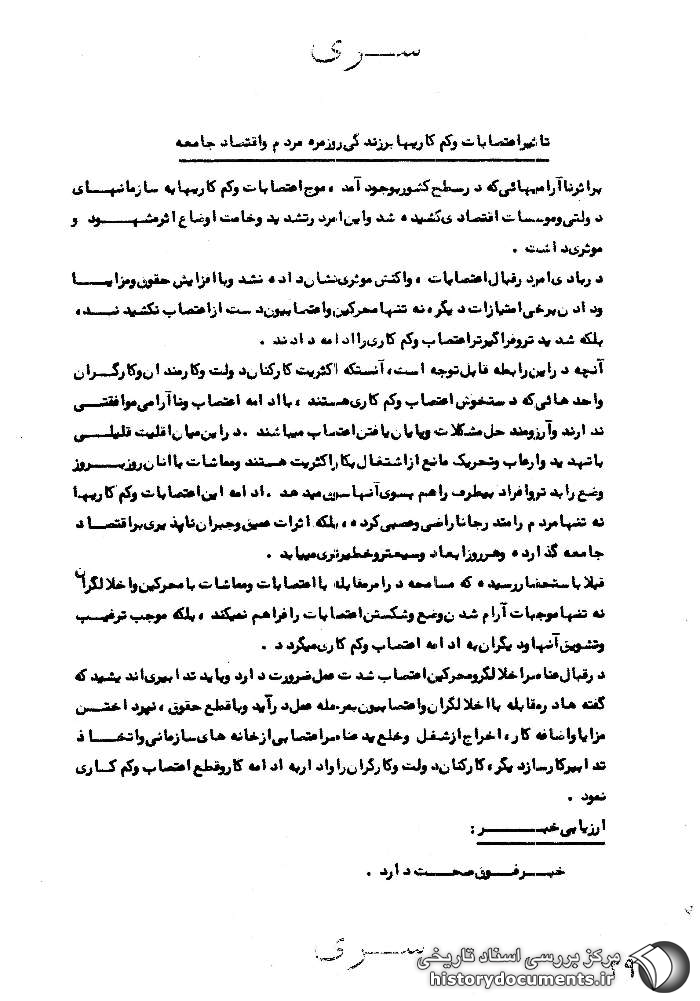 ســری
تاثیر اعتصابات و کم کاریها بر زندگی روزمره مردم و اقتصاد جامعه
بر اثر نا آرامیهائی که در سطح کشور بوجود آمد ، موج اعتصابات و کم کاریها به سازمانهـای
دولتی و موسسات اقتصادی کشیده شد و این امر در تشدید وخامت اوضاع اثر مشهــود و
موثری داشت .
در بادی امر در قبال اعتصابات ، واکنش موثری نشان داده نشد و با افزایش حقوق و مزایــا
و دادن برخی امتیازات دیگر ، نه تنها محرکین و اعتصابیون دست از اعتصاب نکشیدنــد ،
بلکه شدیدتر و فراگیرتر اعتصاب و کم کاری را ادامه دادند .
آنچه در این رابطه قابل توجه است ، آنستکه اکثریت کارکنان دولت و کارمندان و کارگــران
واحدهائی که دستخوش اعتصاب و کم کاری هستند ، با ادامه اعتصاب و نا آرامی موافقتــی
ندارند و آرزومند حل مشکلات و پایان یافتن اعتصاب میباشند . در این میان اقلیت قلیلــی
با تهدید و ارعاب و تحریک مانع از اشتغال بکار اکثریت هستند و مماشات با آنان روز بــروز
وضع را بدتر و افراد بیطرف را هم بسوی آنها سوق میدهد . ادامه این اعتصابات و کم کاریهـا
نه تنها مردم را متدرجا ناراضی و عصبی کرده ، بلکه اثرات عمیق و جبران ناپذیری بر اقتصــاد
جامعه گذارده و هر روز ابعاد وسیعتر و خطیرتری مییابد .
قبلا باستحضار رسیده که مسامحه در امر مقابله با اعتصابات و مماشات با محرکین و اخلالگران
نه تنها موجبات آرام شدن وضع و شکستن اعتصابات را فراهم نمیکند ، بلکه موجب ترغیــب
و تشویق آنها و دیگران به ادامه اعتصاب و کم کاری میگردد .
در قبال عناصر اخلالگر و محرکین اعتصاب شدت عمل ضرورت دارد و باید تدابیری اندیشید که
گفته ها در مقابله با اخلالگران و اعتصابیون بمرحله عمل در آید و با قطع حقوق ، نپرداختــن
مزایا و اضافه کار ، اخراج از شغل و خلع ید عناصر اعتصابی از خانه های سازمانی و اتخــاذ
تدابیر کارساز دیگر ، کارکنان دولت و کارگران را وادار به ادامه کار و قطع اعتصاب و کم کــاری
نمود .
ارزیابی خبــر :
خبــر فــوق صحــت دارد .
ســری
مرکز بررسی اسناد تاریخی
historydocuments.ir